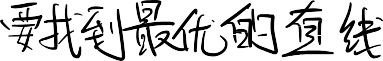 要找到最优的直线